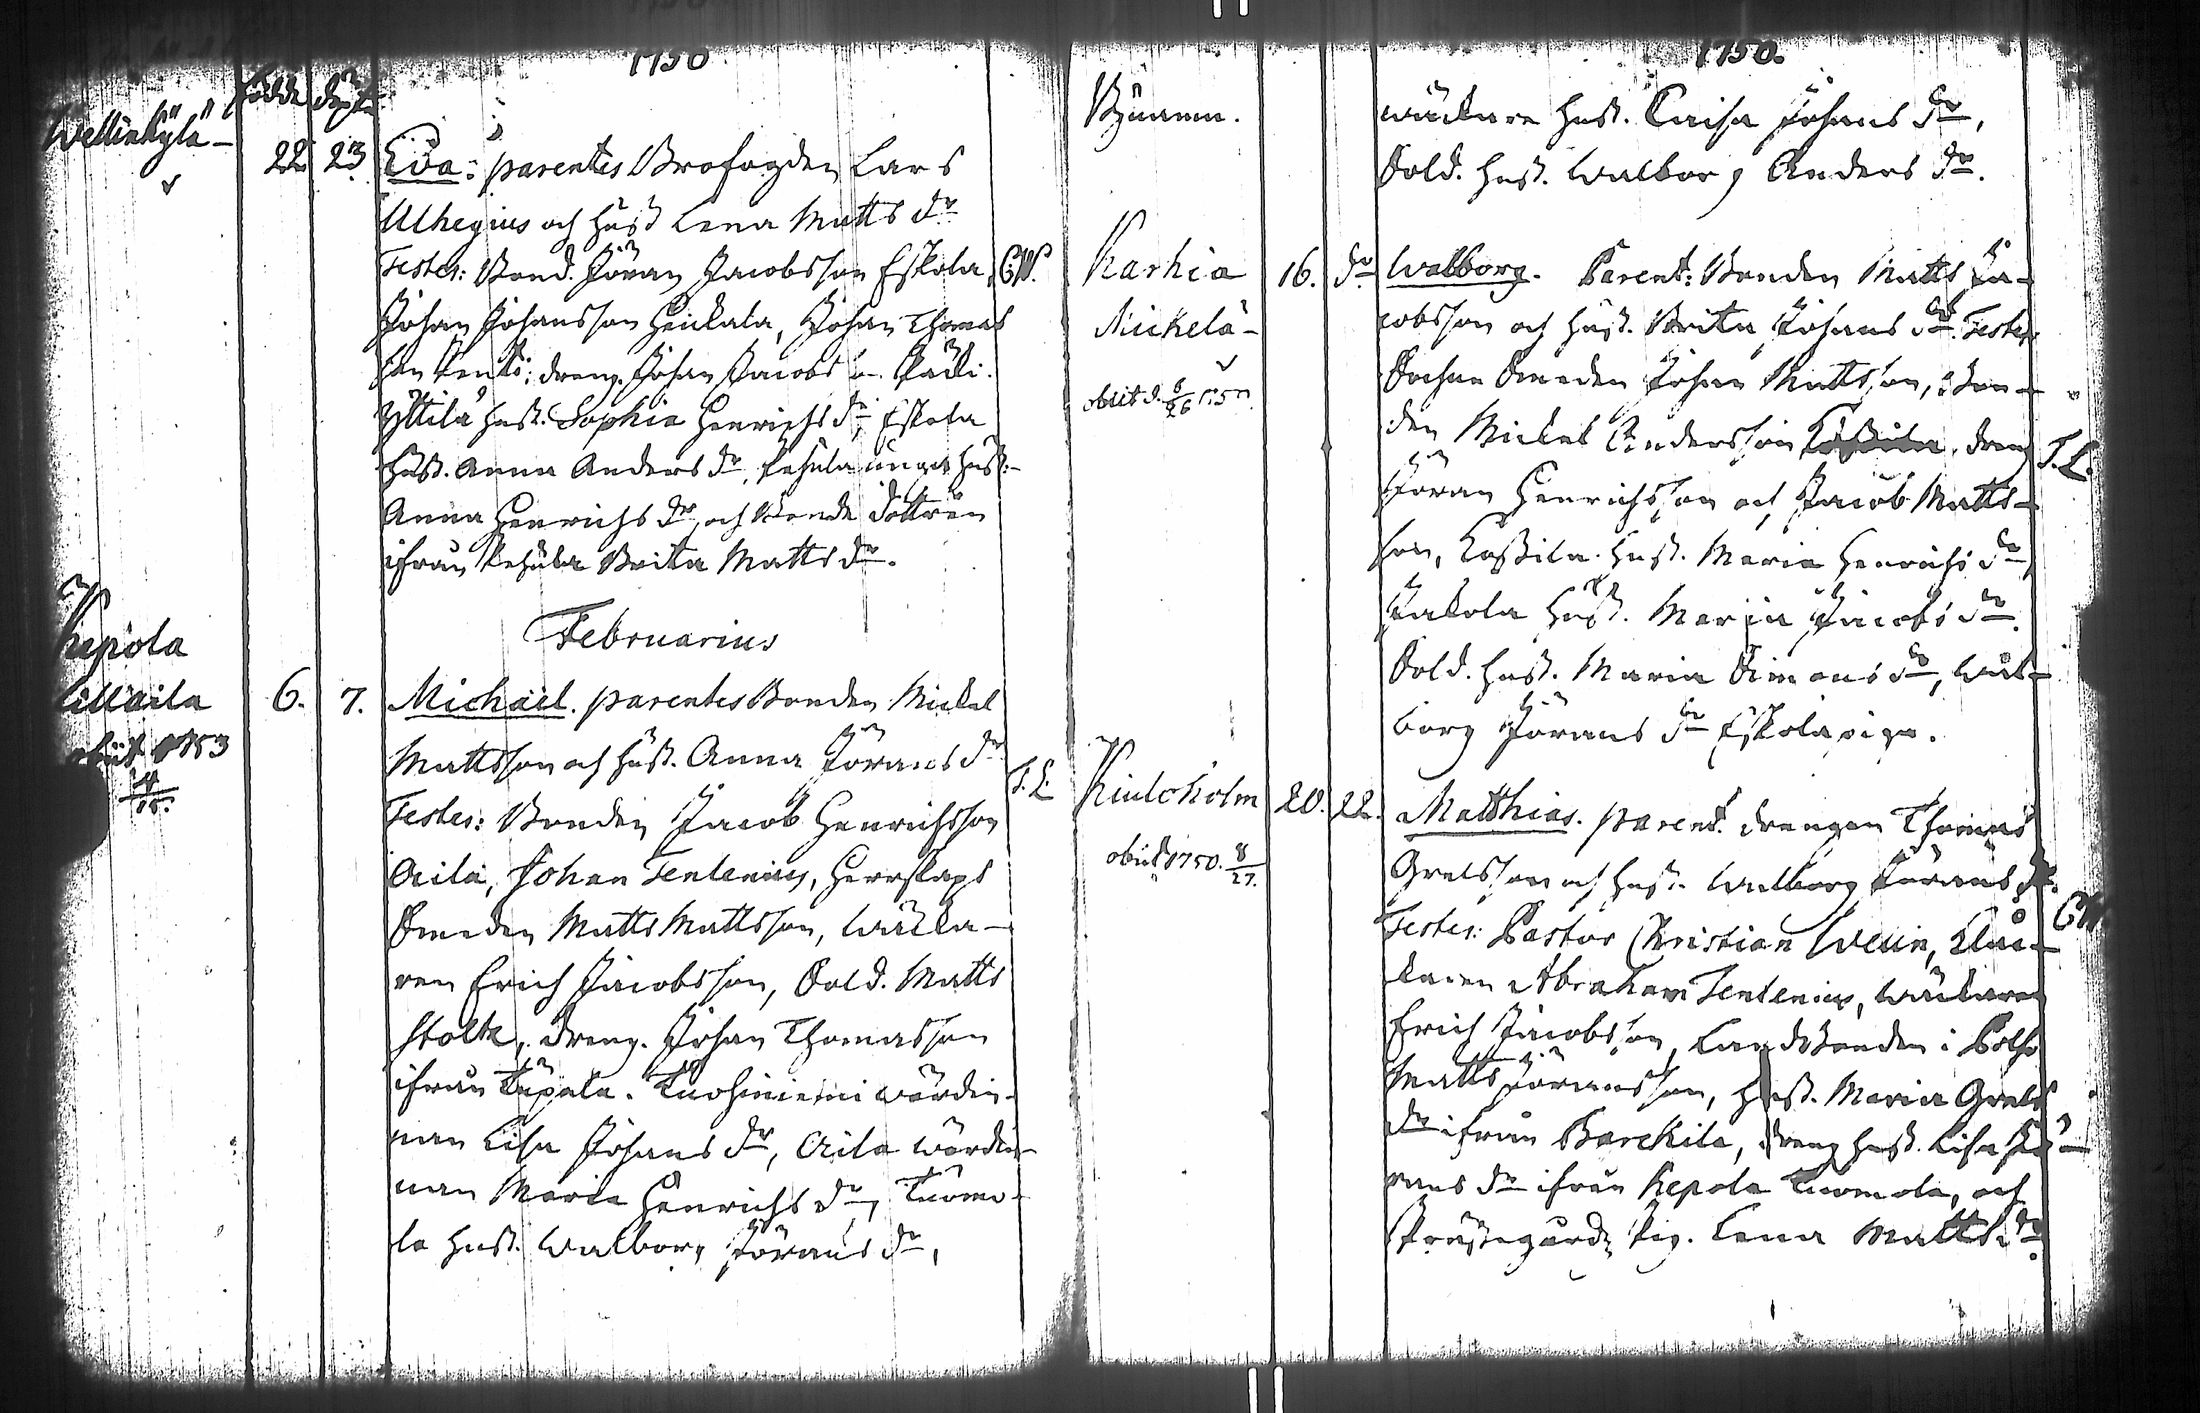 1750
Födde
Wellinkylä
22 23 Eva: parentes Brofogden Lars
Alhegius och Hust Lena Matts dr
Testes: Bond. Jöran Jacobsson Eskola, CW.
Johan Johansson Heickala, Johan Thomas
son; dreng. Johan Jacobs
Yttilä hust. Sophia Henrichs dr, Eskola
hust. Anna Anders dr, unga hust.
Anna Henrichs dr, och Bonde dottren
ifrån Brita Matts dr.
Februarius
Kepola
obiit 1753
6. 7. Michaël. parentes Bonden Mickel
Mattsson och hust. Anna Jörans dr
Testes: Bonden Jacob Henrichsson
Aila, Johan Tentenius, Herrskaps
Smeden Matts Mattsson, Wäcka-
ren Erich Jacobsson, Sold. Matts
Stolt, dreng. Johan Thomasson
ifrån Tuohiniemi wärdin-
nan Lisa Johans dr, Aila wärdin-
nan Maria Henrichs dr, Tuomo-
la hust. Walborg Jörans dr,
1750.
Byarna.
wäckare hust. Caisa Johans dr,
Sold. hust. Walborg Anders dr.
Karhia
Mickelä
16. dr Walborg. Parent: Bonden Matts Ja-
cobsson och hust. Brita Johans dr. Testes:
Sochne Smeden Johan Mattsson, Bon-
den Mickel Andersson, dreng
Jöran Henrichsson och Jacob Matts-
son, Kassila hust. Maria Henrichs dr,
Jakola hust. Maria Jacobs dr.
Sold. hust. Maria Simons dr, Wal-
borg Jörans dr Eskola piga.
Kiuloholm
obiit 1750. 8/27.
20. 22. Matthias. parent. drengen Thomas
Grelsson och hust. Walborg Jörans dr.
Testes: Pastor Christian Welin, Kloc-
karen Abraham Tentenius, Wäckaren
Erich Jacobsson, Landbonden i
Matts Jöransson, hust. Maria Grels
dr ifrån Barckila, dreng hust. Lisa Jö-
rans dr ifrån Kepola Tuomola, och
Prästegårds Pig. Lena Matts dr.